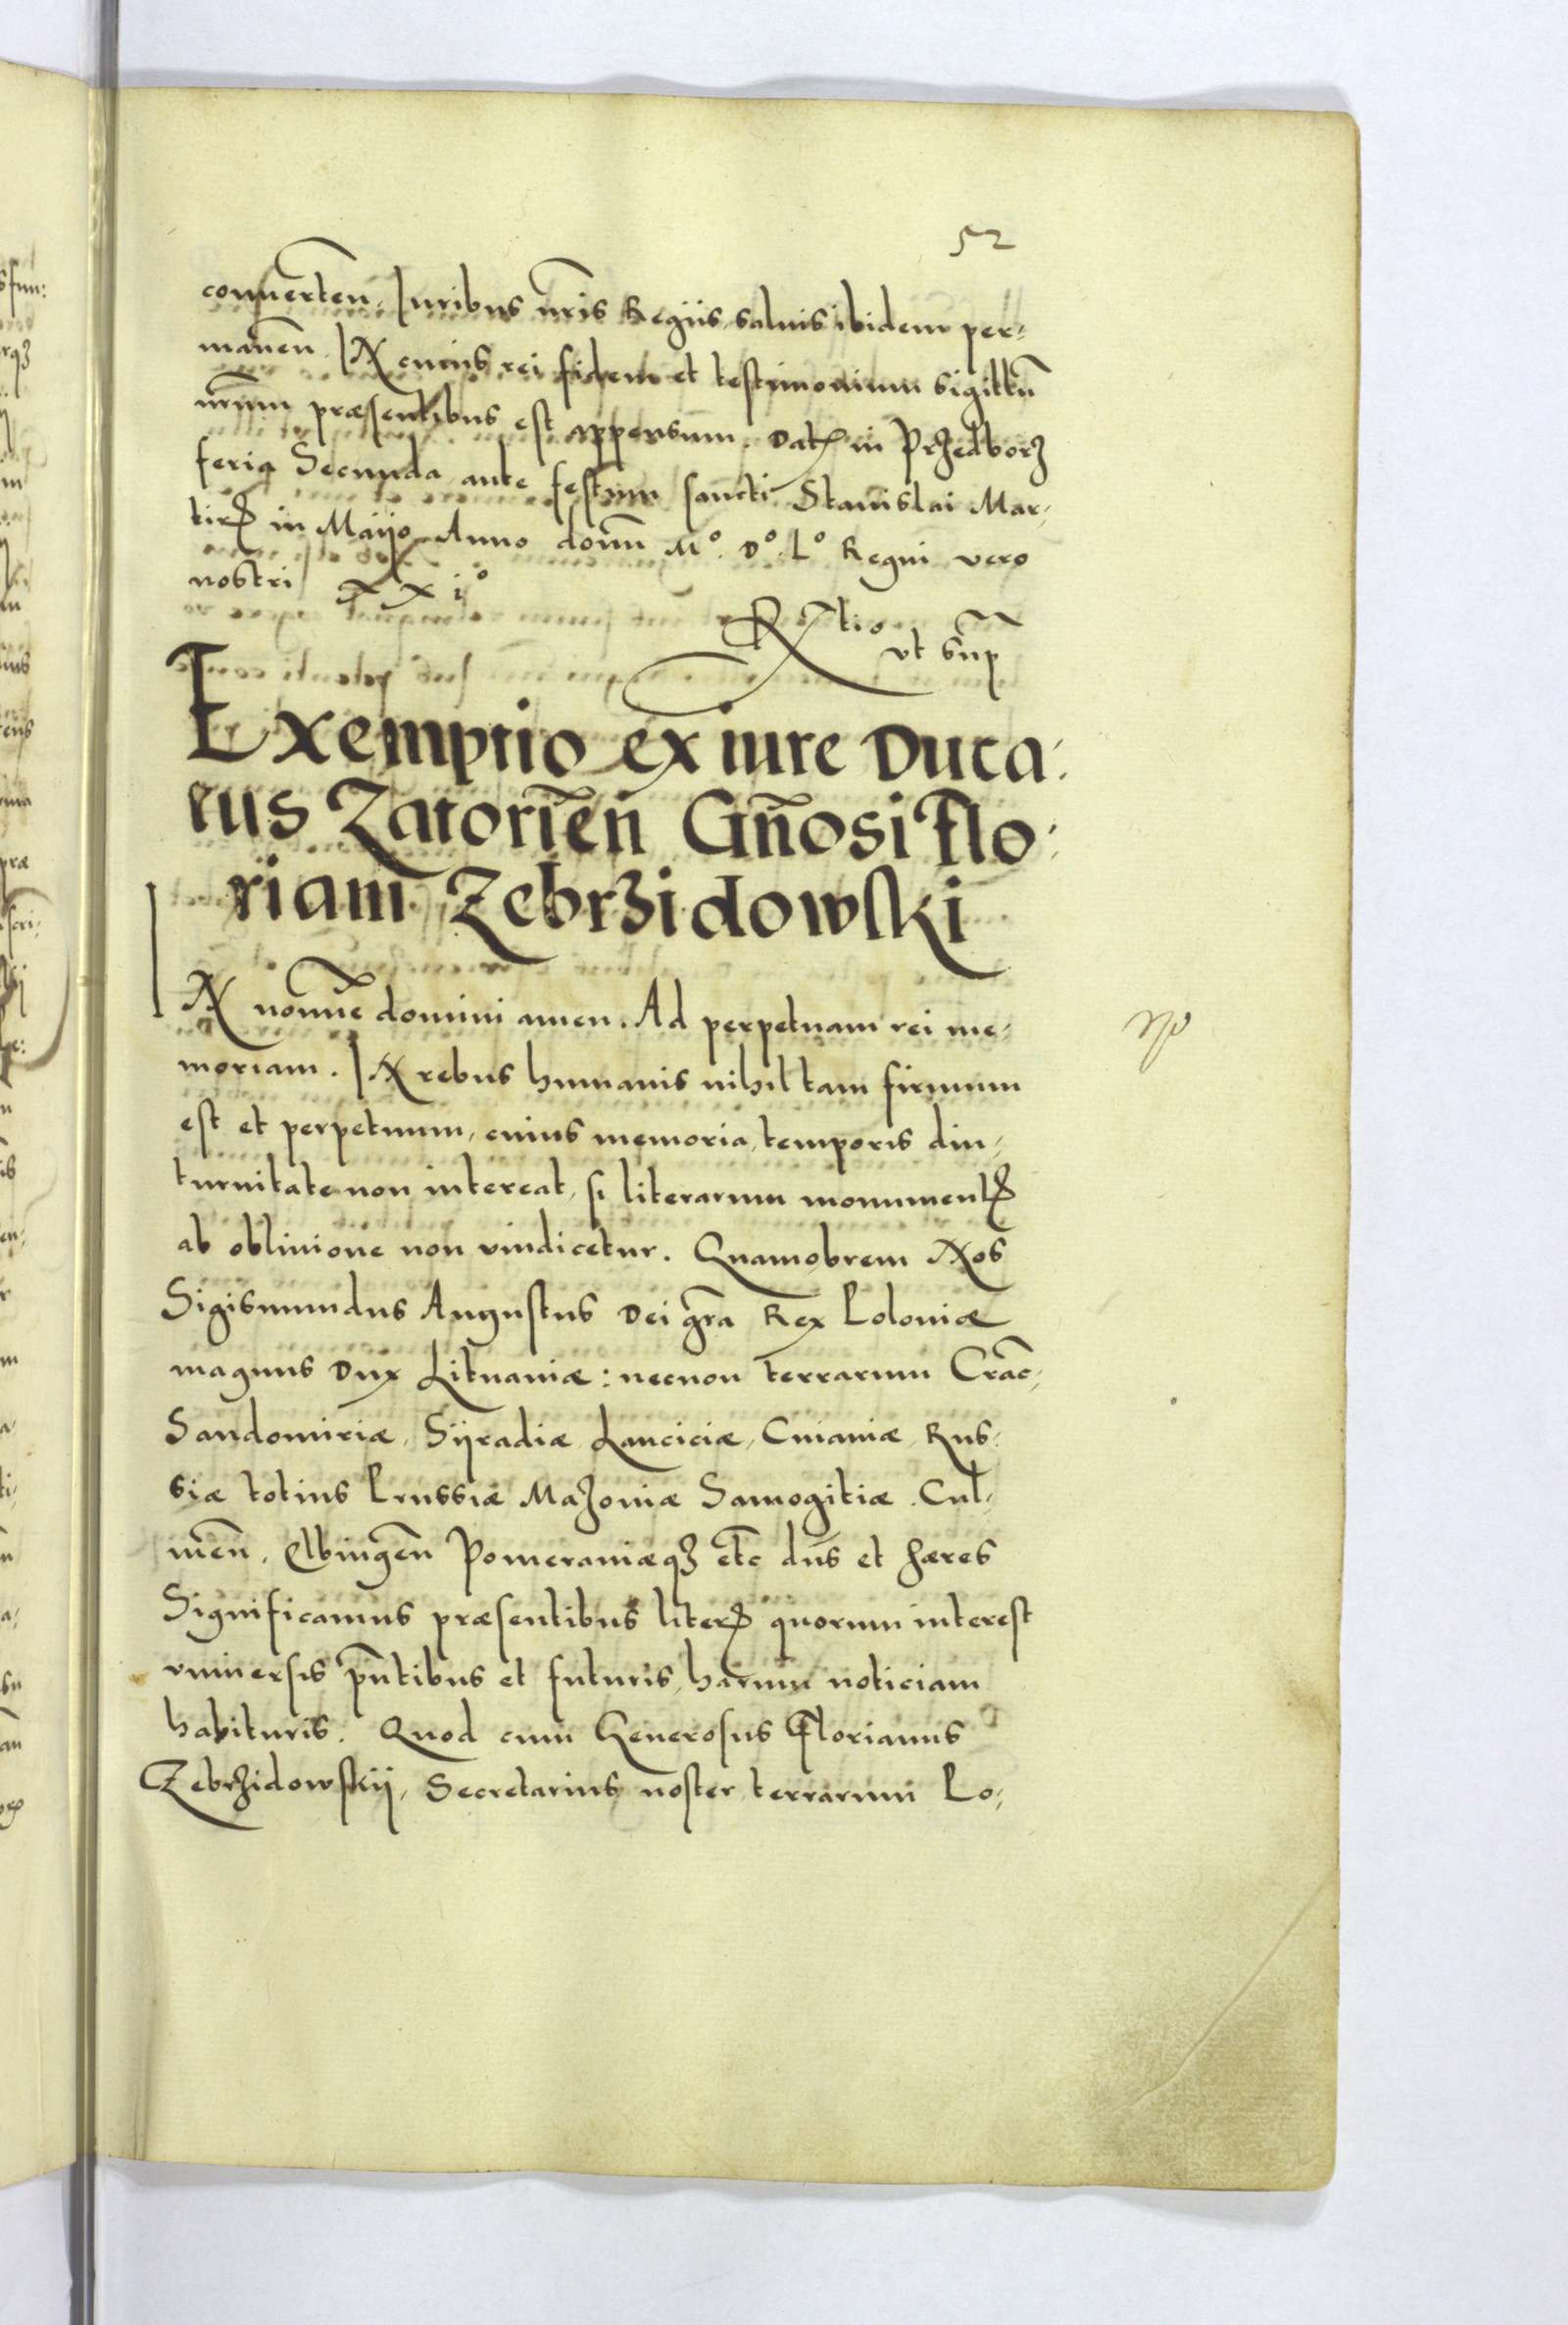 52
conuerten̄. Iuribus nr̄is Regijs saluis ibidem per-
manen̄. IN cuius rei fidem et testimonium sigillū
nr̄um præsentibus est appensum. Datꝭ in Przedborz
feria Secunda ante festum sancti Stanislai Mar-
tirꝭ in Maijo Anno domī Mº. Dº. Lº Regni vero
nostri XXiº
R̄tio
vt sup̄
Exemptio ex iure Duca-
tus Zatorien̄ Gn̄osi Flo-
riam Zebrzidowski
IN nomīe domini amen. Ad perpetuam rei me-
moriam. IN rebus humanis nihil tam firmum
est et perpetuum, cuius memoria, temporis diu-
turnitate non intereat, si literarum monumentꝭ
ab obliuione non vindicetur. Quamobrem Nos
Sigismundus Augustus Dei gr̄a Rex Poloniæ
magnus Dux Lituaniæ: necnon terrarum Crac̄-
Sandomiriæ, Sijradiæ Lanciciæ, Cuiauiæ, Rus-
siæ totius Prussiæ Mazouiæ Samogitiæ. Cul-
men̄. Elbingen̄ Pomeraniæqꝫ etc̄ dn̄s et hæres
Significamus præsentibus literꝭ quorum interest
vniuersis pn̄tibus et futuris, harum noticiam
habituris. Quod cum Generosus Florianus
Zebrzidowskij, Secretarius noster terrarum Po-